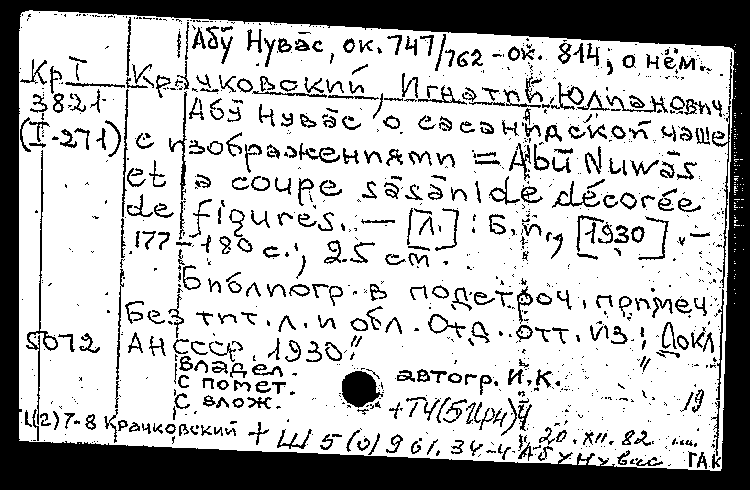 Абӯ Нувāс, ок. 747/762 - ок. 814, о нём.
Кр I Крачковский, Игнатий Юлианович
3821 Абӯ Нувāс о сасанидской чаше
(I-271) с изображениями = Abū Nuwās
et la coupe sāsānide décorée
de figures. — [Л.] : Б.и., [1930]. —
177-180 с.; 25 см.
Библиогр. в подстроч. примеч.
Без тит. л. и обл. Отд. отт. из: "Докл.
5072 АН СССР. 1930."
владел.
с помет. автогр. И.К.
с влож. 19
+Т4(5Ирн)4
Ц(2)7-8 Крачковский + Ш 5(0)9 61.34-4 Абу Нувас
20.XII.82 ГАК